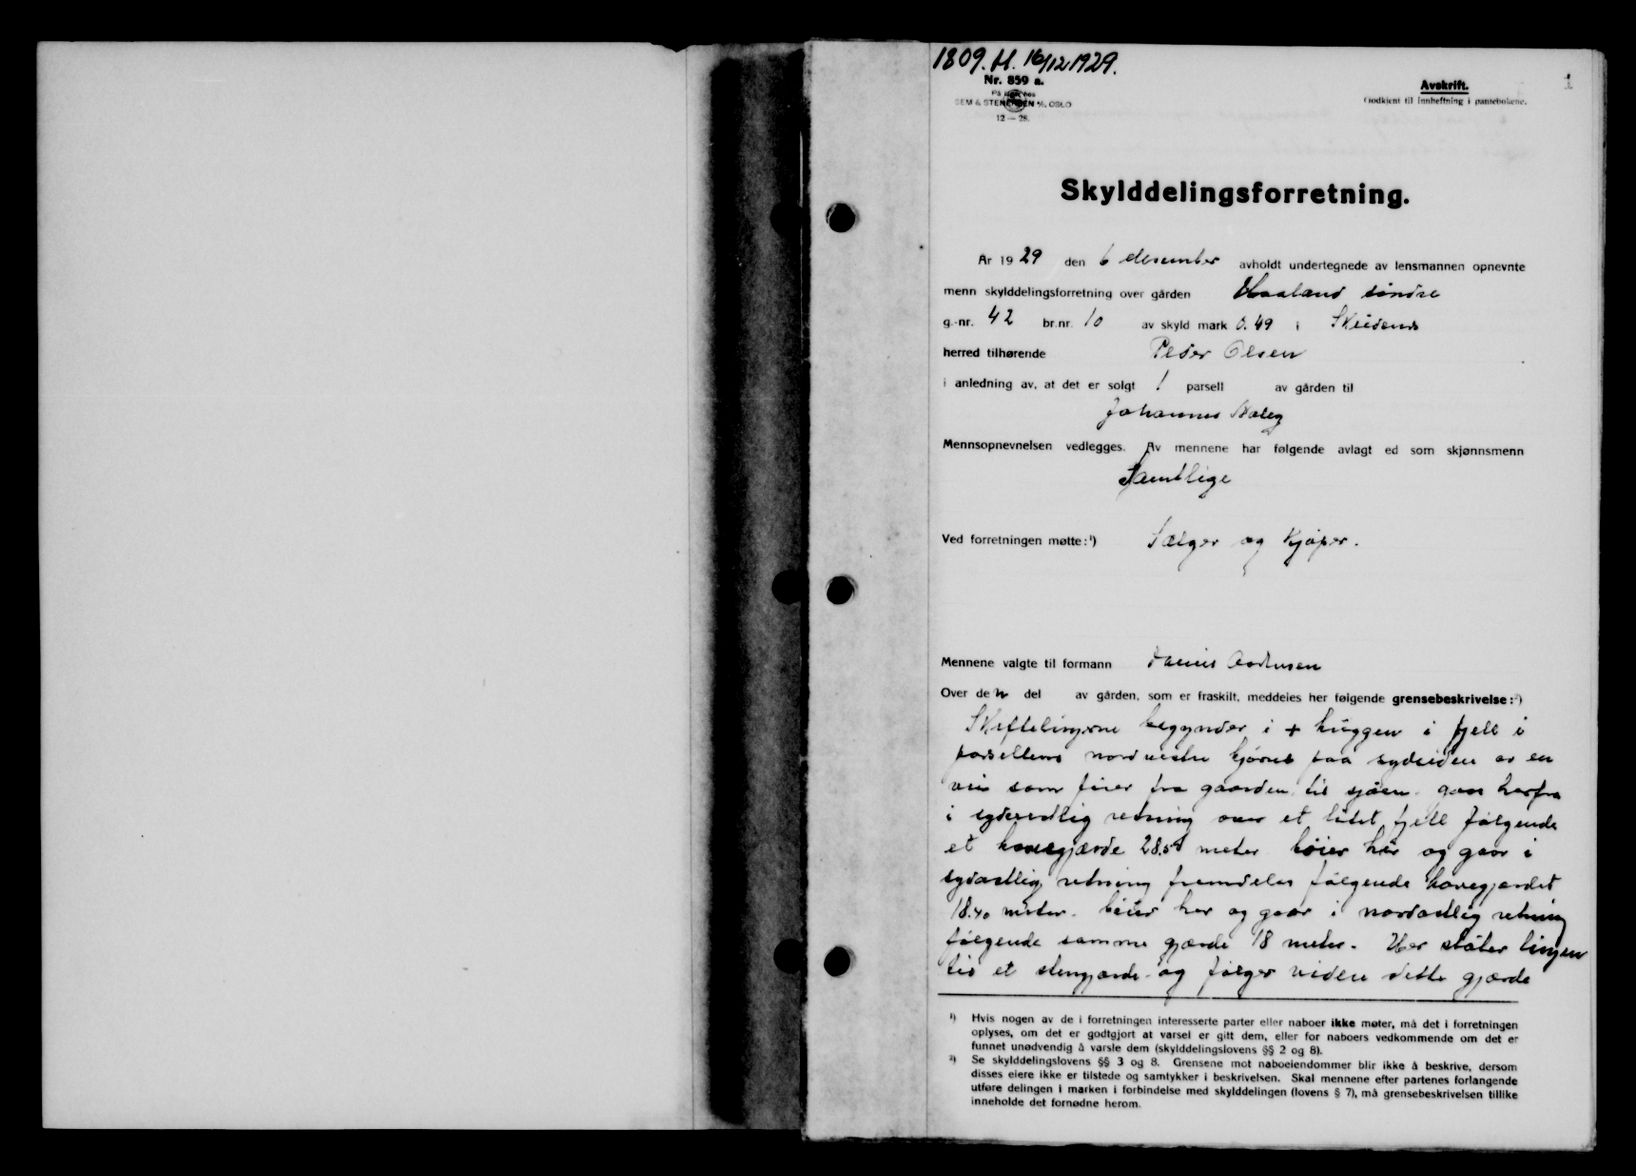 1809. H. 16/12 1929.
Nr. 859 a.
På lager hos
SEM & STENERSEN A/S, OSLO
12 — 28.
Avskrift.
Godkjent til innheftning i pantebøkene.
1
Skylddelingsforretning.
År 1929 den 6 desember avholdt undertegnede av lensmannen opnevnte
menn skylddelingsforretning over gården Haaland söndre
g.-nr. 42 br.nr. 10 av skyld mark 0.49 i
herred tilhørende Peder Olsen
i anledning av, at det er solgt 1 parsell av gården til
Johannes
Mennsopnevnelsen vedlegges. Av mennene har følgende avlagt ed som skjønnsmenn
Samtlige
Ved forretningen møtte:¹) Sælger og Kjöper.
Mennene valgte til formann
Over den del av gården, som er fraskilt, meddeles her følgende grensebeskrivelse:²)
begynder i + huggen i fjell i
parsellens nordvestre hjörne paa sydsiden av en
vei som förer fra gaarden til sjöen. gaar herfra
i retning over et litet fjell fölgende
et havegjærde 28.50 meter böier her og gaar i
sydostlig retning fremdeles fölgende havegjærdet
18.40 meter. böier her og gaar i nordostlig retning
fölgende samme gjærde 18 meter. Her stöter linjen
til et stengjærde og fölger videre dette gjærde
¹) Hvis nogen av de i forretningen interesserte parter eller naboer ikke møter, må det i forretningen
oplyses, om det er godtgjort at varsel er gitt dem, eller for naboers vedkommende om det er
funnet unødvendig å varsle dem (skylddelingslovens §§ 2 og 8).
²) Se skylddelingslovens §§ 3 og 8. Grensene mot naboeiendommer blir ikke å beskrive, dersom
disses eiere ikke er tilstede og samtykker i beskrivelsen. Skal mennene efter partenes forlangende
utføre delingen i marken i forbindelse med skylddelingen (lovens § 7), må grensebeskrivelsen tillike
inneholde det fornødne herom.